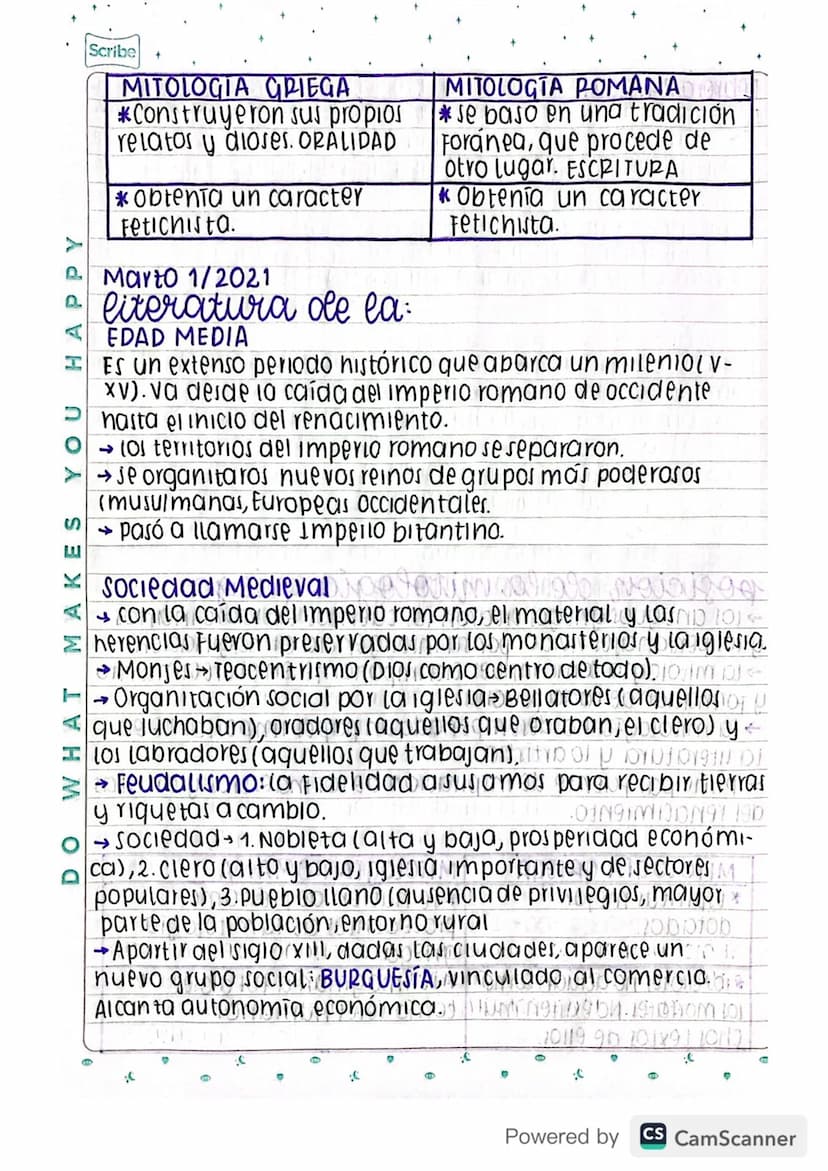 Scribe
MITOLOGÍA GRIEGA
*Construyeron sus propios
relatos y dioses. ORALIDAD
*Obtenía un caracter
Fetichista.
MITOLOGÍA ROMANA
*Se baso en una tradición
Foránea, que procede de
otro lugar. ESCRITURA
*Obtenía un caracter
Fetichista.
DO WHAT MAKES YOU HAPPY
Marzo 1/2021
literatura de la:
EDAD MEDIA
Es un extenso periodo histórico que abarca un milenio(V-
XV). Va desde la caída del imperio romano de occidente
hasta el inicio del renacimiento.
→ Los territorios del imperio romano se separaron.
→ Se organizaros nuevos reinos de grupos más poderosos
(musulmanas, Europeas Occidentales.
→ Pasó a llamarse Imperio bizantino.
Sociedad Medieval
→ con la caída del imperio romano, el material y las
herencias fueron preservadas por los monasterios y la iglesia.
→ Monjes → Teocentrismo (Dios como centro de todo).
→ Organización social por la iglesia → Bellatores (aquellos
que luchaban), oradores (aquellos que oraban, el clero) y
los labradores (aquellos que trabajan).
→ Feudalismo: La Fidelidad a sus amos para recibir tierras
y riquezas a cambio.
→ Sociedad → 1. Nobleza (alta y baja, prosperidad económi-
ca), 2. Clero (alto y bajo, iglesia importante y de sectores
populares), 3. Pueblo llano (ausencia de privilegios, mayor
parte de la población, entorno rural
→ Apartir del siglo XIII, dadas las ciudades, aparece un
nuevo grupo social: BURGUESÍA, vinculado al comercio.
Alcanza autonomía económica.
Powered by CS CamScanner